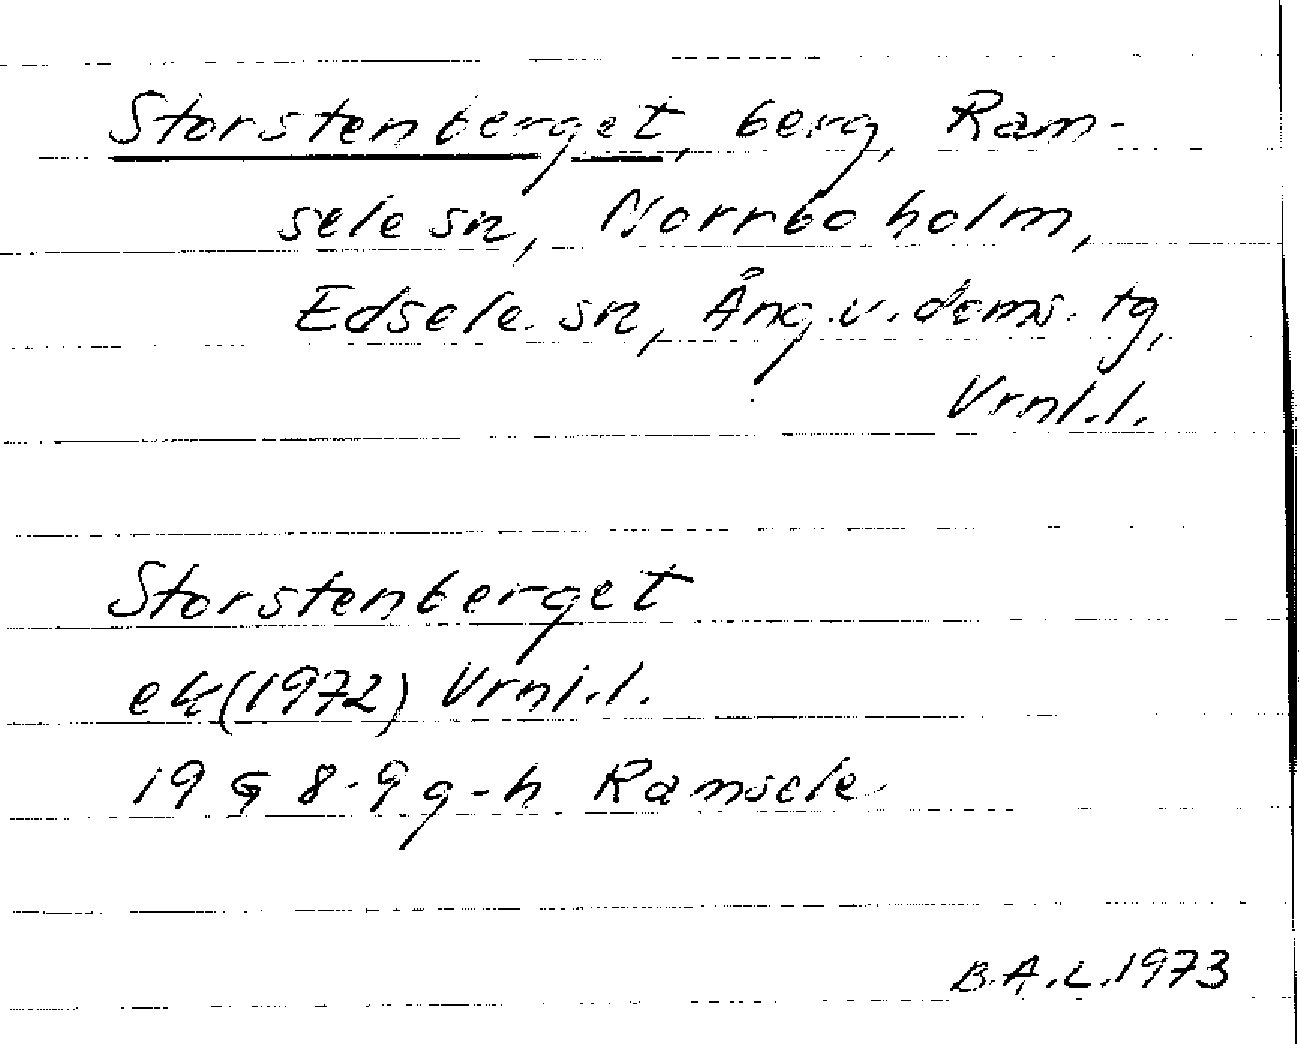 Storstenberget, berg, Ram-
sele sn, Norrboholm,
Edsele sn, Ång.v.doms.tg,
Vrnl.l.
Storstenberget
ek(1972) Vrnl.l.
19 G 8-9 g-h Ramsele
B.A.L.1973